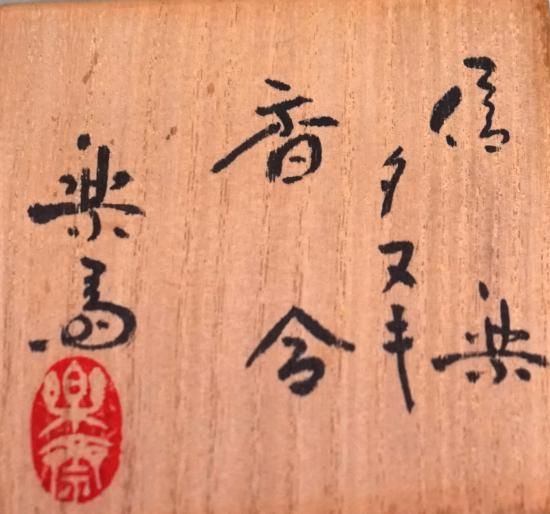 信楽
タヌキ
香合
楽斎
楽斎